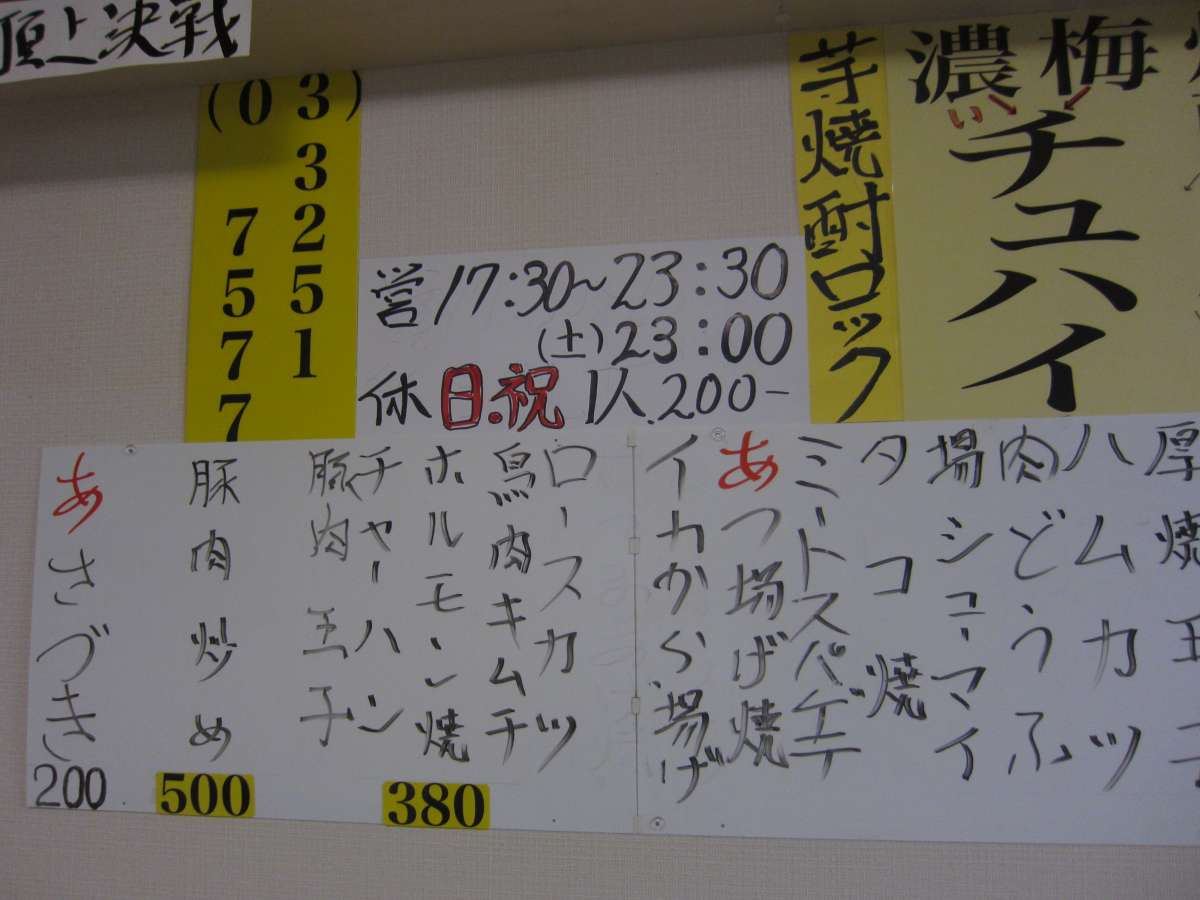 頂上決戦
(03)
3251
7577
営17:30〜23:30
(土)23:00
休日.祝 1人.200-
芋焼酎ロック
濃い梅
チュハイ
厚焼玉子
ハムカツ
肉どうふ
揚シューマイ
タコ焼
ミートスパゲテ
あつ揚げ焼
イカから揚げ
ロースカツ
鳥肉キムチ
ホルモン焼
チャーハン
豚肉玉子
豚肉炒め
あさづき
200
500
380